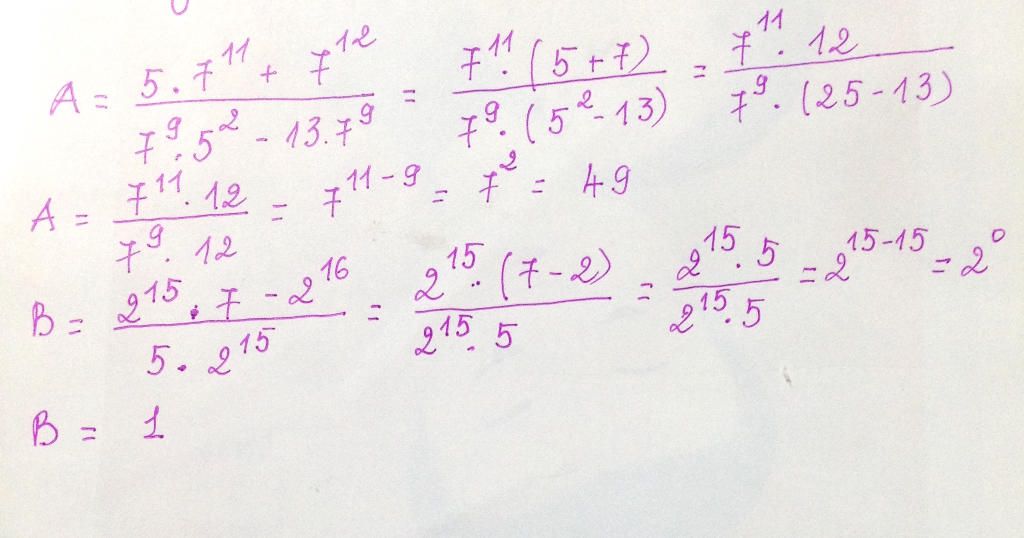 A = (5 . 7^11 + 7^12) / (7^9 . 5^2 - 13 . 7^9) = (7^11 . (5 + 7)) / (7^9 . (5^2 - 13)) = (7^11 . 12) / (7^9 . (25 - 13))
A = (7^11 . 12) / (7^9 . 12) = 7^(11-9) = 7^2 = 49
B = (2^15 . 7 - 2^16) / (5 . 2^15) = (2^15 . (7 - 2)) / (2^15 . 5) = (2^15 . 5) / (2^15 . 5) = 2^(15-15) = 2^0
B = 1